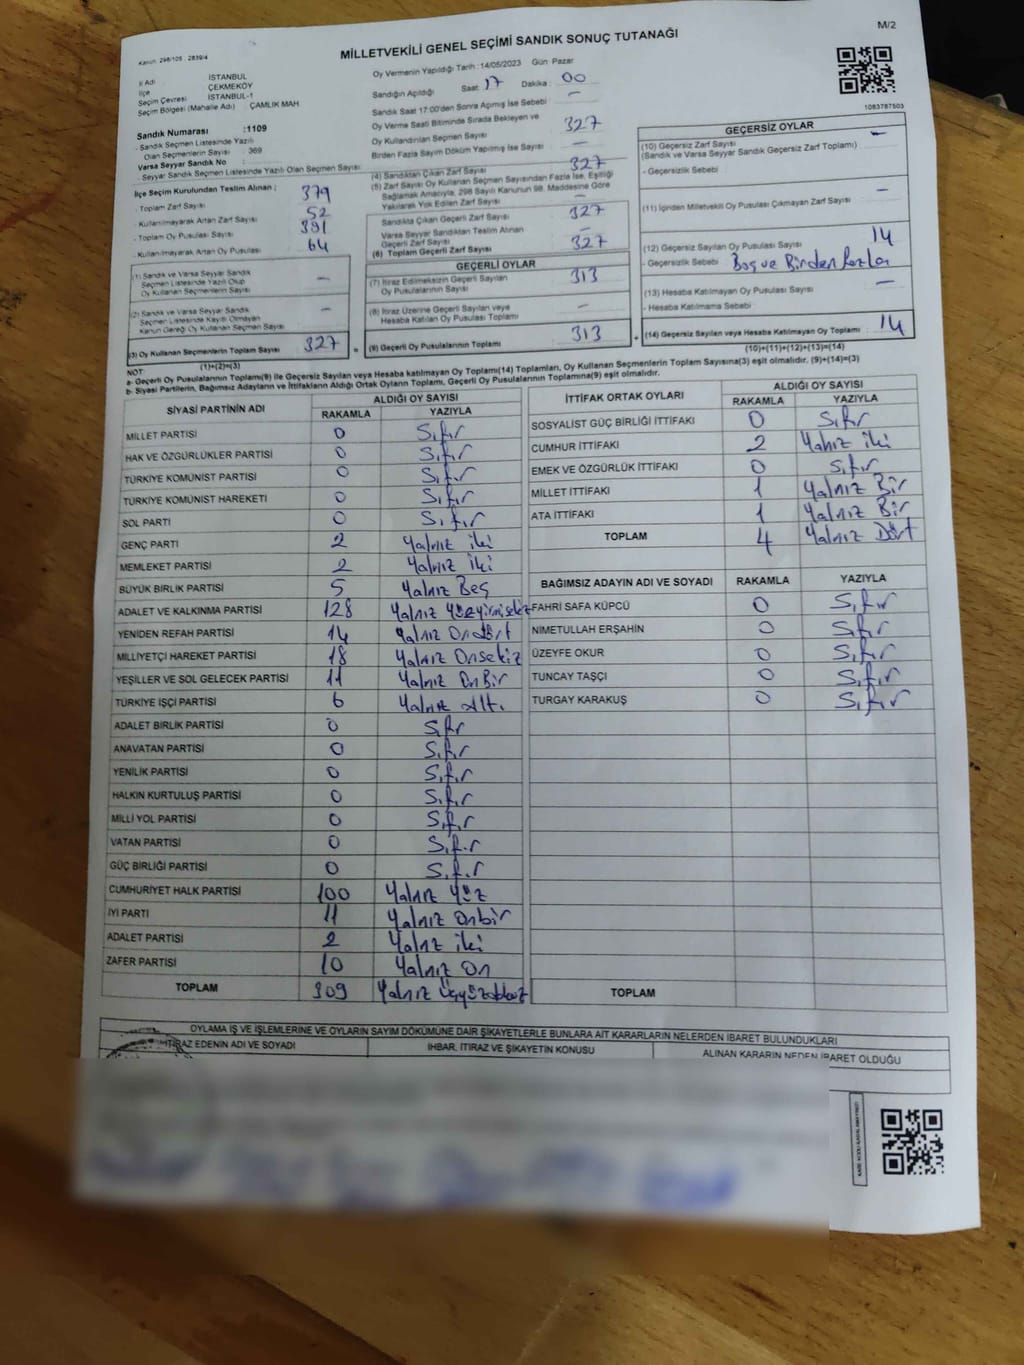 MİLLETVEKİLİ GENEL SEÇİMİ SANDIK SONUÇ TUTANAĞI
M/2
Kanun: 298/105 2839/4
İl Adı İSTANBUL
İlçe ÇEKMEKÖY
Seçim Çevresi İSTANBUL-1
Seçim Bölgesi (Mahalle Adı) ÇAMLIK MAH
Sandık Numarası :1109
- Sandık Seçmen Listesinde Yazılı
Olan Seçmenlerin Sayısı : 369
Varsa Seyyar Sandık No :
- Seyyar Sandık Seçmen Listesinde Yazılı Olan Seçmen Sayısı
Oy Vermenin Yapıldığı Tarih :14/05/2023 Gün: Pazar
Sandığın Açıldığı Saat: 17 Dakika : 00
Sandık Saat 17:00'den Sonra Açılmış İse Sebebi : -
Oy Verme Saati Bitiminde Sırada Bekleyen ve
Oy Kullandırılan Seçmen Sayısı 327
Birden Fazla Sayım Döküm Yapılmış İse Sayısı : -
1083787503
İlçe Seçim Kurulundan Teslim Alınan ;
- Toplam Zarf Sayısı 379
- Kullanılmayarak Artan Zarf Sayısı 52
- Toplam Oy Pusulası Sayısı 391
- Kullanılmayarak Artan Oy Pusulası 64
(1) Sandık ve Varsa Seyyar Sandık
Seçmen Listesinde Yazılı Olup
Oy Kullanan Seçmenlerin Sayısı -
(2) Sandık ve Varsa Seyyar Sandık
Seçmen Listesinde Kayıtlı Olmayan
Kanun Gereği Oy Kullanan Seçmen Sayısı -
(3) Oy Kullanan Seçmenlerin Toplam Sayısı 327
(1)+(2)=(3)
(4) Sandıktan Çıkan Zarf Sayısı 327
(5) Zarf Sayısı Oy Kullanan Seçmen Sayısından Fazla İse, Eşitliği
Sağlamak Amacıyla, 298 Sayılı Kanunun 98. Maddesine Göre
Yakılarak Yok Edilen Zarf Sayısı -
Sandıkta Çıkan Geçerli Zarf Sayısı 327
Varsa Seyyar Sandıktan Teslim Alınan
Geçerli Zarf Sayısı -
(6) Toplam Geçerli Zarf Sayısı 327
GEÇERLİ OYLAR
(7) İtiraz Edilmeksizin Geçerli Sayılan
Oy Pusulalarının Sayısı 313
(8) İtiraz Üzerine Geçerli Sayılan veya
Hesaba Katılan Oy Pusulası Toplamı -
(9) Geçerli Oy Pusulalarının Toplamı 313
GEÇERSİZ OYLAR
(10) Geçersiz Zarf Sayısı -
(Sandık ve Varsa Seyyar Sandık Geçersiz Zarf Toplamı)
- Geçersizlik Sebebi
(11) İçinden Milletvekili Oy Pusulası Çıkmayan Zarf Sayısı -
(12) Geçersiz Sayılan Oy Pusulası Sayısı 14
- Geçersizlik Sebebi Boş ve Birden Fazla
(13) Hesaba Katılmayan Oy Pusulası Sayısı -
- Hesaba Katılmama Sebebi
(14) Geçersiz Sayılan veya Hesaba Katılmayan Oy Toplamı 14
(10)+(11)+(12)+(13)=(14)
NOT:
a- Geçerli Oy Pusulalarının Toplamı(9) ile Geçersiz Sayılan veya Hesaba katılmayan Oy Toplamı(14) Toplamları, Oy Kullanan Seçmenlerin Toplam Sayısına(3) eşit olmalıdır. (9)+(14)=(3)
b- Siyasi Partilerin, Bağımsız Adayların ve İttifakların Aldığı Ortak Oyların Toplamı, Geçerli Oy Pusulalarının Toplamına(9) eşit olmalıdır.
SİYASİ PARTİNİN ADI ALDIĞI OY SAYISI
RAKAMLA YAZIYLA
MİLLET PARTİSİ 0 Sıfır
HAK VE ÖZGÜRLÜKLER PARTİSİ 0 Sıfır
TÜRKİYE KOMÜNİST PARTİSİ 0 Sıfır
TÜRKİYE KOMÜNİST HAREKETİ 0 Sıfır
SOL PARTİ 0 Sıfır
GENÇ PARTİ 2 Yalnız iki
MEMLEKET PARTİSİ 2 Yalnız İki
BÜYÜK BİRLİK PARTİSİ 5 Yalnız Beş
ADALET VE KALKINMA PARTİSİ 128 Yalnız Yüzyirmisekiz
YENİDEN REFAH PARTİSİ 14 Yalnız Ondört
MİLLİYETÇİ HAREKET PARTİSİ 18 Yalnız Onsekiz
YEŞİLLER VE SOL GELECEK PARTİSİ 11 Yalnız OnBir
TÜRKİYE İŞÇİ PARTİSİ 6 Yalnız altı
ADALET BİRLİK PARTİSİ 0 Sıfır
ANAVATAN PARTİSİ 0 Sıfır
YENİLİK PARTİSİ 0 Sıfır
HALKIN KURTULUŞ PARTİSİ 0 Sıfır
MİLLİ YOL PARTİSİ 0 Sıfır
VATAN PARTİSİ 0 Sıfır
GÜÇ BİRLİĞİ PARTİSİ 0 Sıfır
CUMHURİYET HALK PARTİSİ 100 Yalnız Yüz
İYİ PARTİ 11 Yalnız onbir
ADALET PARTİSİ 2 Yalnız iki
ZAFER PARTİSİ 10 Yalnız On
TOPLAM 309 Yalnız Üçyüzdokuz
İTTİFAK ORTAK OYLARI ALDIĞI OY SAYISI
RAKAMLA YAZIYLA
SOSYALİST GÜÇ BİRLİĞİ İTTİFAKI 0 Sıfır
CUMHUR İTTİFAKI 2 Yalnız iki
EMEK VE ÖZGÜRLÜK İTTİFAKI 0 Sıfır
MİLLET İTTİFAKI 1 Yalnız Bir
ATA İTTİFAKI 1 Yalnız Bir
TOPLAM 4 Yalnız Dört
BAĞIMSIZ ADAYIN ADI VE SOYADI RAKAMLA YAZIYLA
FAHRİ SAFA KÜPCÜ 0 Sıfır
NİMETULLAH ERŞAHİN 0 Sıfır
ÜZEYFE OKUR 0 Sıfır
TUNCAY TAŞÇI 0 Sıfır
TURGAY KARAKUŞ 0 Sıfır
TOPLAM
OYLAMA İŞ VE İŞLEMLERİNE VE OYLARIN SAYIM DÖKÜMÜNE DAİR ŞİKAYETLERLE BUNLARA AİT KARARLARIN NELERDEN İBARET BULUNDUKLARI
İTİRAZ EDENİN ADI VE SOYADI
İHBAR, İTİRAZ VE ŞİKAYETİN KONUSU
ALINAN KARARIN NEDEN İBARET OLDUĞU